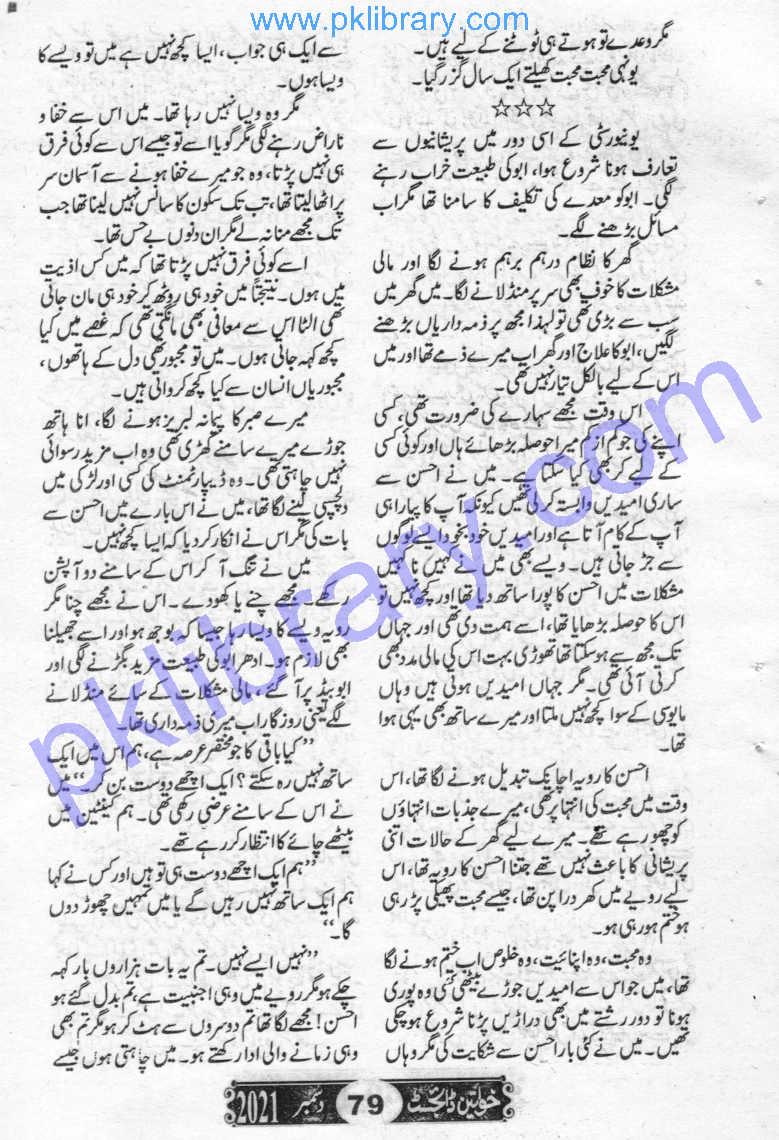 www.pklibrary.com
مگر وعدے تو ہوتے ہی ٹوٹنے کے لیے ہیں۔
یونہی محبت محبت کھیلتے ایک سال گزر گیا۔
☆☆☆
یونیورسٹی کے اسی دور میں پریشانیوں سے
تعارف ہونا شروع ہوا، ابو کی طبیعت خراب رہنے
لگی۔ ابو کو معدے کی تکلیف کا سامنا تھا مگر اب
مسائل بڑھنے لگے۔
گھر کا نظام درہم برہم ہونے لگا اور مالی
مشکلات کا خوف بھی سر پر منڈلانے لگا۔ میں گھر میں
سب سے بڑی تھی تو لہذا مجھ پر ذمہ داریاں بڑھنے
لگیں، ابو کا علاج اور گھر اب میرے ذمے تھا اور میں
اس کے لیے بالکل تیار نہیں تھی۔
اس وقت مجھے سہارے کی ضرورت تھی، کسی
اپنے کی جو کم از کم میرا حوصلہ بڑھائے ہاں اور کوئی کسی
کے لیے کر بھی کیا سکتا ہے۔ میں نے احسن سے
ساری امیدیں وابستہ کر لی تھیں کیونکہ آپ کا پیارا ہی
آپ کے کام آتا ہے اور امیدیں خود بخود ایسے لوگوں
سے جڑ جاتی ہیں۔ ویسے بھی میں نے کہیں نا کہیں
مشکلات میں احسن کا پورا ساتھ دیا تھا اور کچھ نہیں تو
اس کا حوصلہ بڑھایا تھا، اسے ہمت دی تھی اور جہاں
تک مجھ سے ہو سکتا تھا تھوڑی بہت اس کی مالی مدد بھی
کرتی آئی تھی۔ مگر جہاں امیدیں ہوتی ہیں وہاں
مایوسی کے سوا کچھ نہیں ملتا اور میرے ساتھ بھی یہی ہوا
تھا۔
احسن کا رویہ اچانک تبدیل ہونے لگا تھا، اس
وقت میں محبت کی انتہا پر تھی، میرے جذبات انتہاؤں
کو چھو رہے تھے۔ میرے لیے گھر کے حالات اتنی
پریشانی کا باعث نہیں تھے جتنا احسن کا رویہ تھا، اس
لیے رویے میں کھردرا پن تھا، جیسے محبت پھیکی پڑ رہی
ہو ختم ہو رہی ہو۔
وہ محبت، وہ اپنائیت، وہ خلوص اب ختم ہونے لگا
تھا، میں جو اس سے امیدیں جوڑے بیٹھی تھی وہ پوری
ہونا تو دور رشتے میں بھی دراڑیں پڑنا شروع ہو چکی
تھیں۔ میں نے کئی بار احسن سے شکایت کی مگر وہاں
سے ایک ہی جواب، ایسا کچھ نہیں ہے میں تو ویسے کا
ویسا ہوں۔
مگر وہ ویسا نہیں رہا تھا۔ میں اس سے خفا و
ناراض رہنے لگی مگر گویا اسے تو جیسے اس سے کوئی فرق
ہی نہیں پڑتا، وہ جو میرے خفا ہونے سے آسمان سر
پر اٹھا لیتا تھا، تب تک سکون کا سانس نہیں لیتا تھا جب
تک مجھے منا نہ لے مگر ان دنوں بے حس تھا۔
اسے کوئی فرق نہیں پڑتا تھا کہ میں کس اذیت
میں ہوں۔ نتیجتاً میں خود ہی روٹھ کر خود ہی مان جاتی
تھی الٹا اس سے معافی بھی مانگتی تھی کہ غصے میں کیا
کچھ کہہ جاتی ہوں۔ میں تو مجبور تھی دل کے ہاتھوں،
مجبوریاں انسان سے کیا کچھ کرواتی ہیں۔
میرے صبر کا پیمانہ لبریز ہونے لگا، انا ہاتھ
جوڑے میرے سامنے کھڑی تھی وہ اب مزید رسوائی
نہیں چاہتی تھی۔ وہ ڈیپارٹمنٹ کی کسی اور لڑکی میں
دلچسپی لینے لگا تھا، میں نے اس بارے میں احسن سے
بات کی مگر اس نے انکار کر دیا کہ ایسا کچھ نہیں۔
میں نے تنگ آ کر اس کے سامنے دو آپشن
رکھے۔ مجھے چنے یا کھو دے۔ اس نے مجھے چنا مگر
رویہ ویسے کا ویسا رہا جیسا کہ بوجھ ہو اور اسے جھیلنا
بھی لازم ہو۔ ادھر ابو کی طبیعت مزید بگڑنے لگی اور
ابو بیڈ پر آ گئے، مالی مشکلات کے سائے منڈلانے
لگے یعنی روزگار اب میری ذمہ داری تھا۔
”کیا باقی کا جو مختصر عرصہ ہے، ہم اس میں ایک
ساتھ نہیں رہ سکتے؟ ایک اچھے دوست بن کر۔“ میں
نے اس کے سامنے عرضی رکھی تھی۔ ہم کینٹین میں
بیٹھے چائے کا انتظار کر رہے تھے۔
”ہم ایک اچھے دوست ہی تو ہیں اور کس نے کہا
ہم ایک ساتھ نہیں رہیں گے یا میں تمہیں چھوڑ دوں
گا۔“
”نہیں ایسے نہیں۔ تم یہ بات ہزاروں بار کہہ
چکے ہو مگر رویے میں وہی اجنبیت ہے، تم بدل گئے ہو
احسن! مجھے لگا تھا تم دوسروں سے ہٹ کر ہو مگر تم بھی
وہی زمانے والی ادا رکھتے ہو۔ میں چاہتی ہوں جیسے
خواتین ڈائجسٹ 79 دسمبر 2021
pklibrary.com